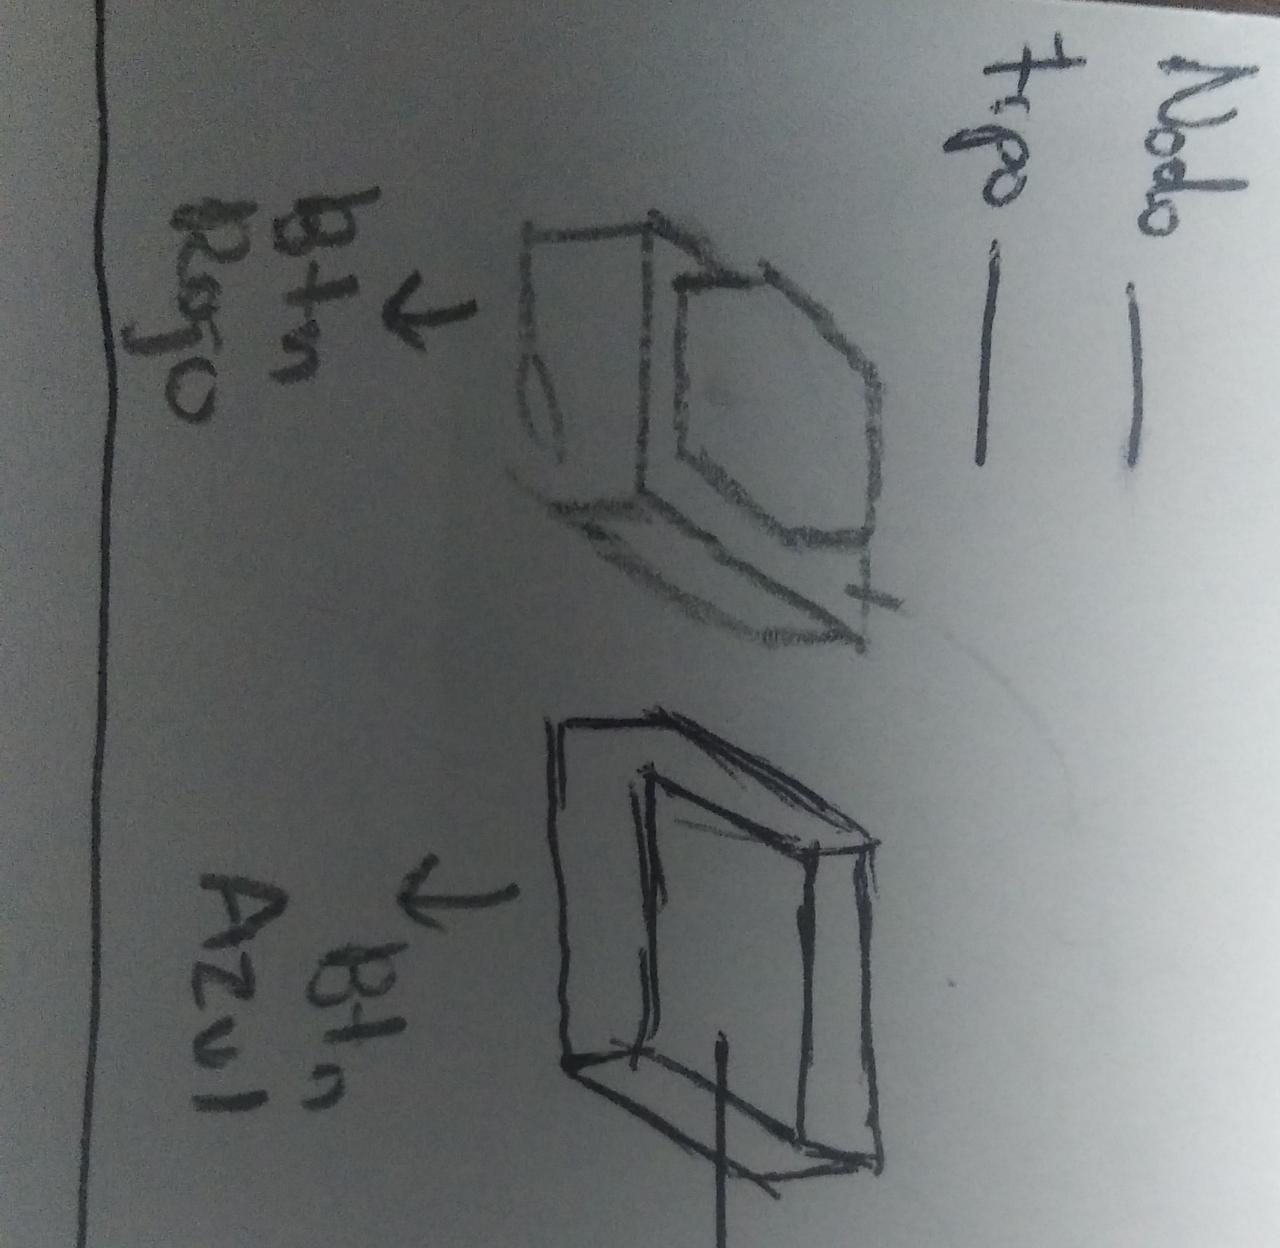 Nodo ___
Tipo ___
Btn
Rojo
Btn
Azul